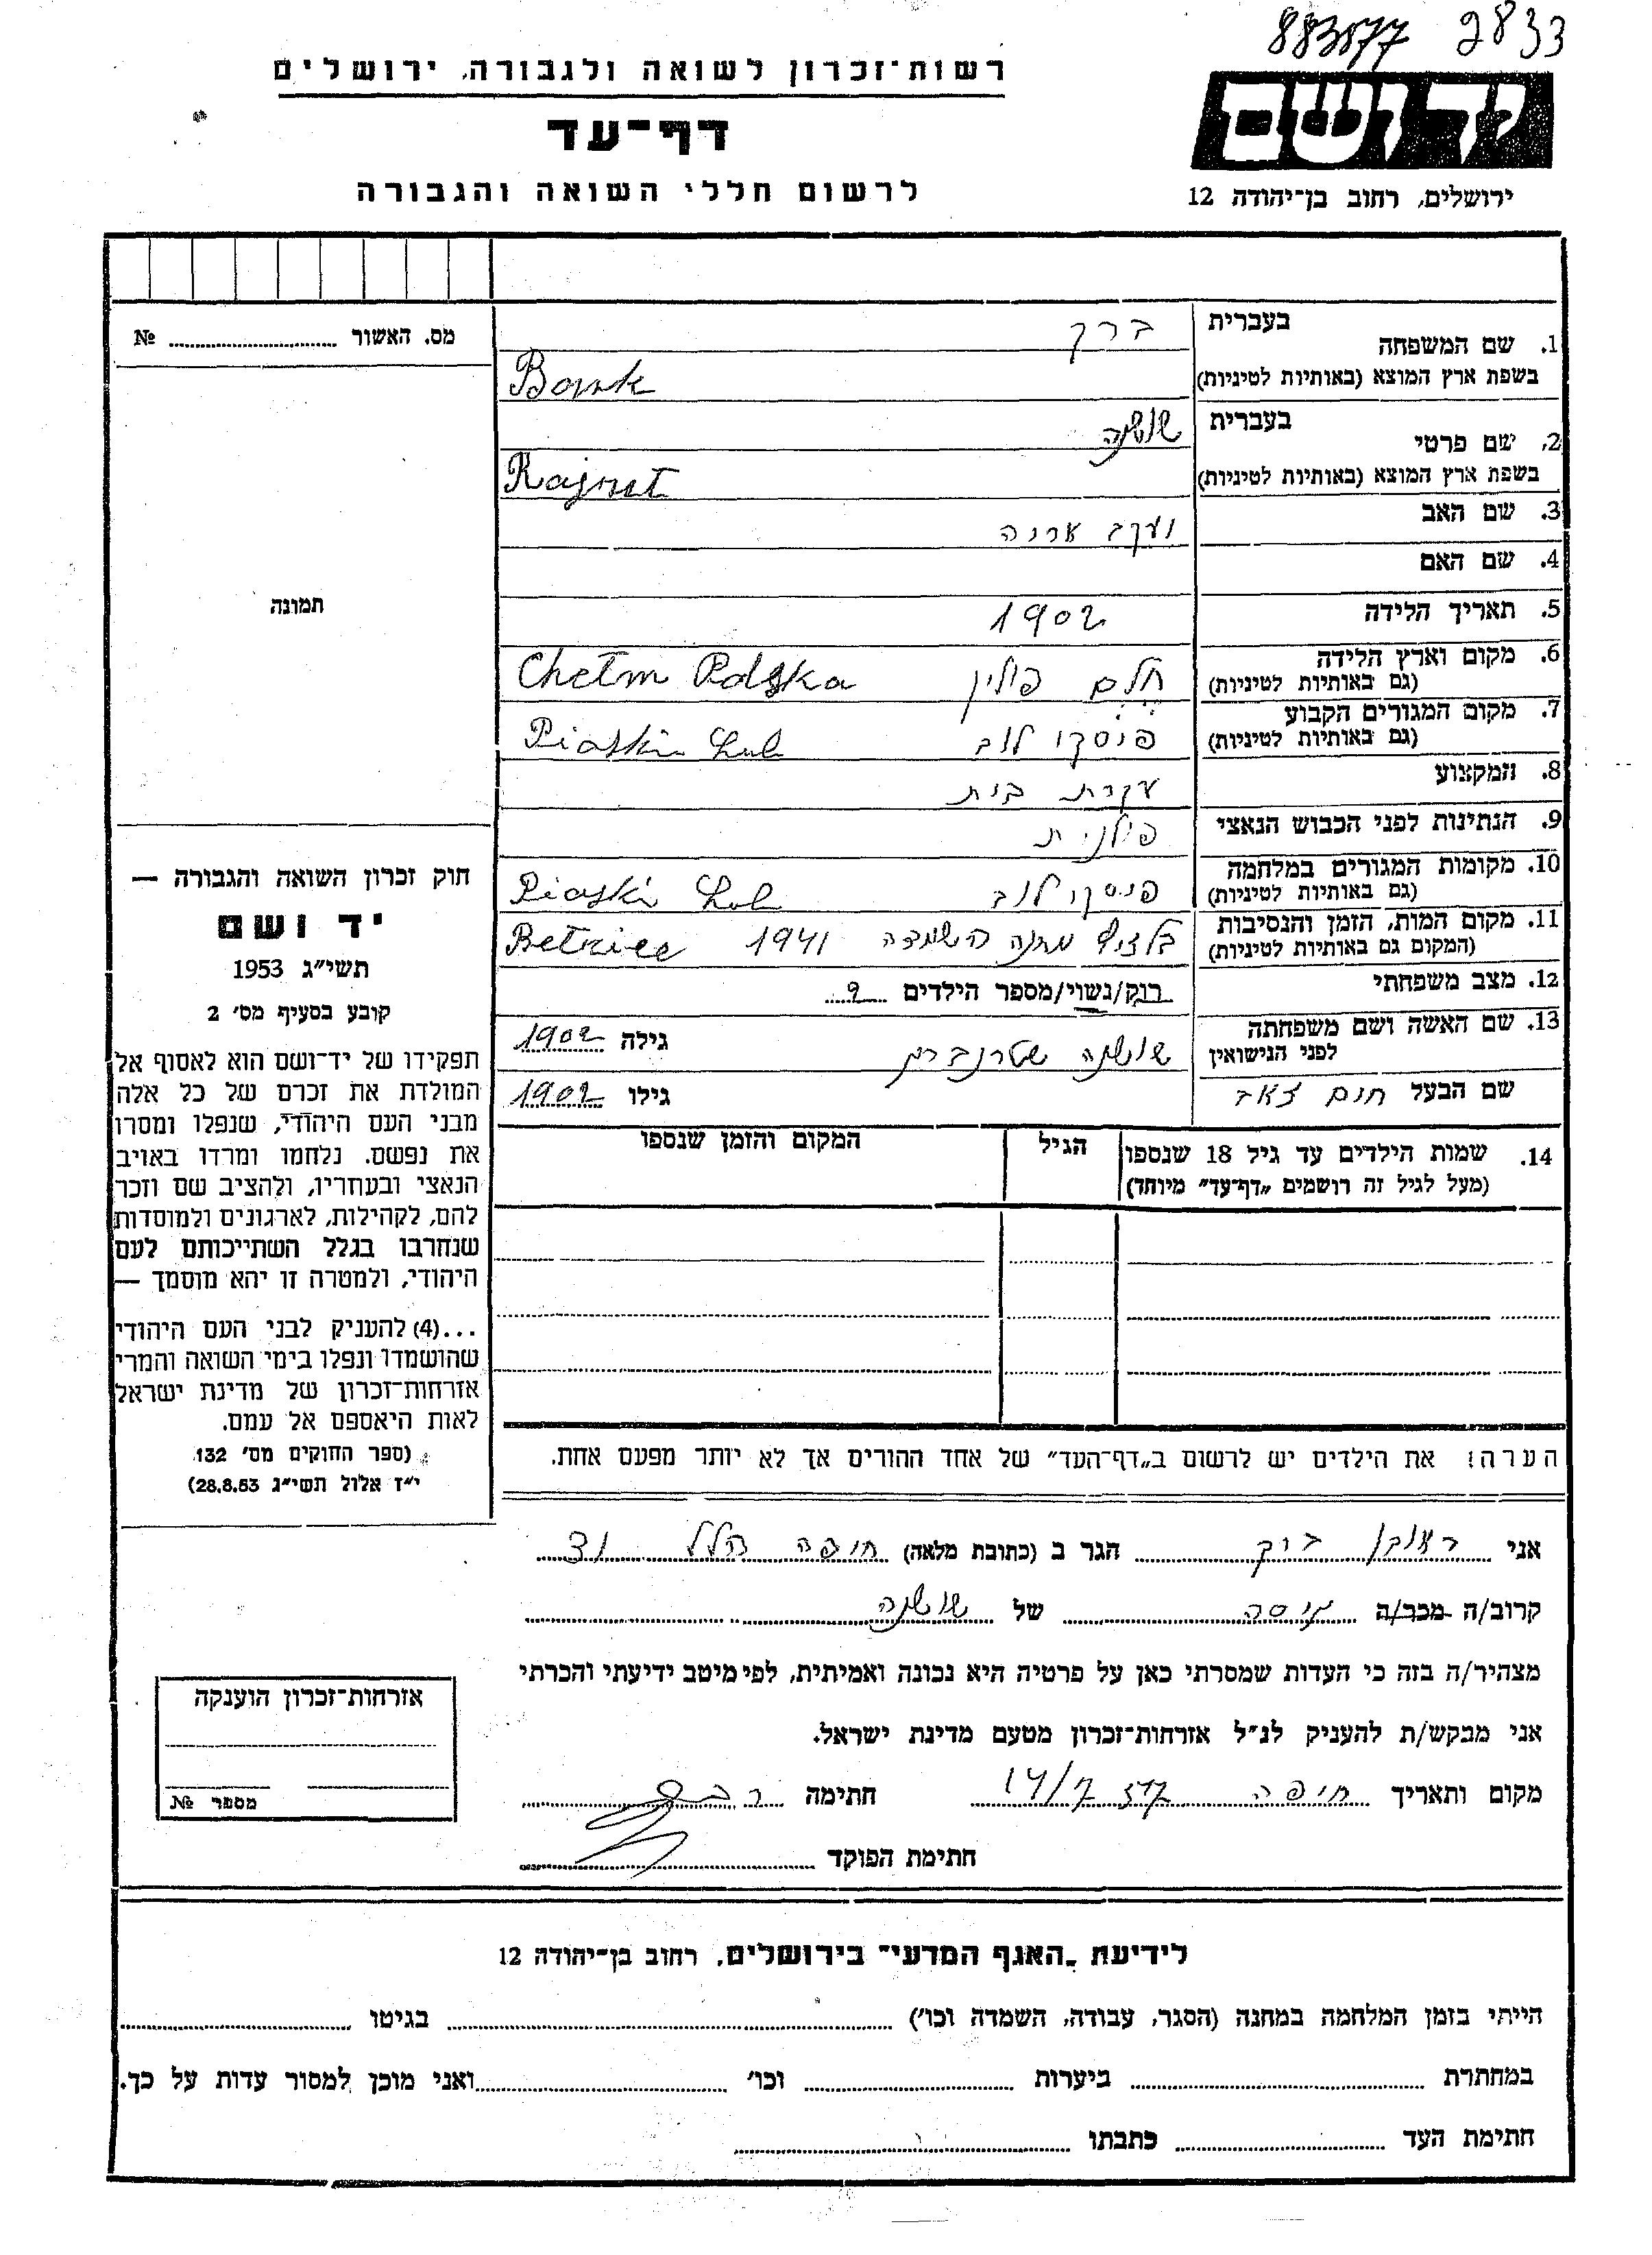 883577 2833
יד ושם
ירושלים, רחוב בן־יהודה 12
רשות־זכרון לשואה ולגבורה, ירושלים
דף־עד
לרשום חללי השואה והגבורה
מס. האשור № ..........
תמונה
1. שם המשפחה
בעברית ברק
בשפת ארץ המוצא (באותיות לטיניות)
2. שם פרטי
בעברית שושנה
בשפת ארץ המוצא (באותיות לטיניות) Rajzet
3. שם האב יעקב אריה
4. שם האם
5. תאריך הלידה 1902
6. מקום וארץ הלידה (גם באותיות לטיניות) חלם פולין Chełm Polska
7. מקום המגורים הקבוע (גם באותיות לטיניות) פיסקי לוב Piaski Lub
8. המקצוע עקרת בית
9. הנתינות לפני הכבוש הנאצי פולנית
10. מקומות המגורים במלחמה (גם באותיות לטיניות) פיסקי לוב Piaski Lub
11. מקום המות, הזמן והנסיבות (המקום גם באותיות לטיניות) בלזיץ מחנה השמדה 1941
12. מצב משפחתי רוק/נשוי/מספר הילדים
13. שם האשה ושם משפחתה לפני הנישואין שושנה שטרנברג גילה 1902
שם הבעל חיים זאב גילו 1902
14. שמות הילדים עד גיל 18 שנספו (מעל לגיל זה רושמים "דף־עד" מיוחד) הגיל המקום והזמן שנספו
הערה: את הילדים יש לרשום ב"דף־העד" של אחד ההורים אך לא יותר מפעם אחת.
חוק זכרון השואה והגבורה —
יד ושם
תשי״ג 1953
קובע בסעיף מס׳ 2
תפקידו של יד־ושם הוא לאסוף אל
המולדת את זכרם של כל אלה
מבני העם היהודי, שנפלו ומסרו
את נפשם. נלחמו ומרדו באויב
הנאצי ובעחריו, ולהציב שם וזכר
להם, לקהילות, לארגונים ולמוסדות
שנחרבו בגלל השתייכותם לעם
היהודי, ולמטרה זו יהא מוסמך —
...(4) להעניק לבני העם היהודי
שהושמדו ונפלו בימי השואה והמרי
אזרחות־זכרון של מדינת ישראל
לאות היאספם אל עמם.
(ספר החוקים מס׳ 132
י״ז אלול תשי״ג 28.8.53)
אני ראובן ברק הגר ב (כתובת מלאה) חיפה הלל
קרוב/ה מכר/ה של שושנה
מצהיר/ה בזה כי העדות שמסרתי כאן על פרטיה היא נכונה ואמיתית, לפי מיטב ידיעתי והכרתי
אני מבקש/ת להעניק לנ״ל אזרחות־זכרון מטעם מדינת ישראל.
מקום ותאריך חיפה חתימה
חתימת הפוקד
אזרחות־זכרון הוענקה
מספר №
לידיעת "האגף המדעי" בירושלים, רחוב בן־יהודה 12
הייתי בזמן המלחמה במחנה (הסגר, עבודה, השמדה וכו׳) .......... בגיטו ..........
במחתרת .......... ביערות .......... וכו׳ .......... ואני מוכן למסור עדות על כך.
חתימת העד .......... כתבתו ..........